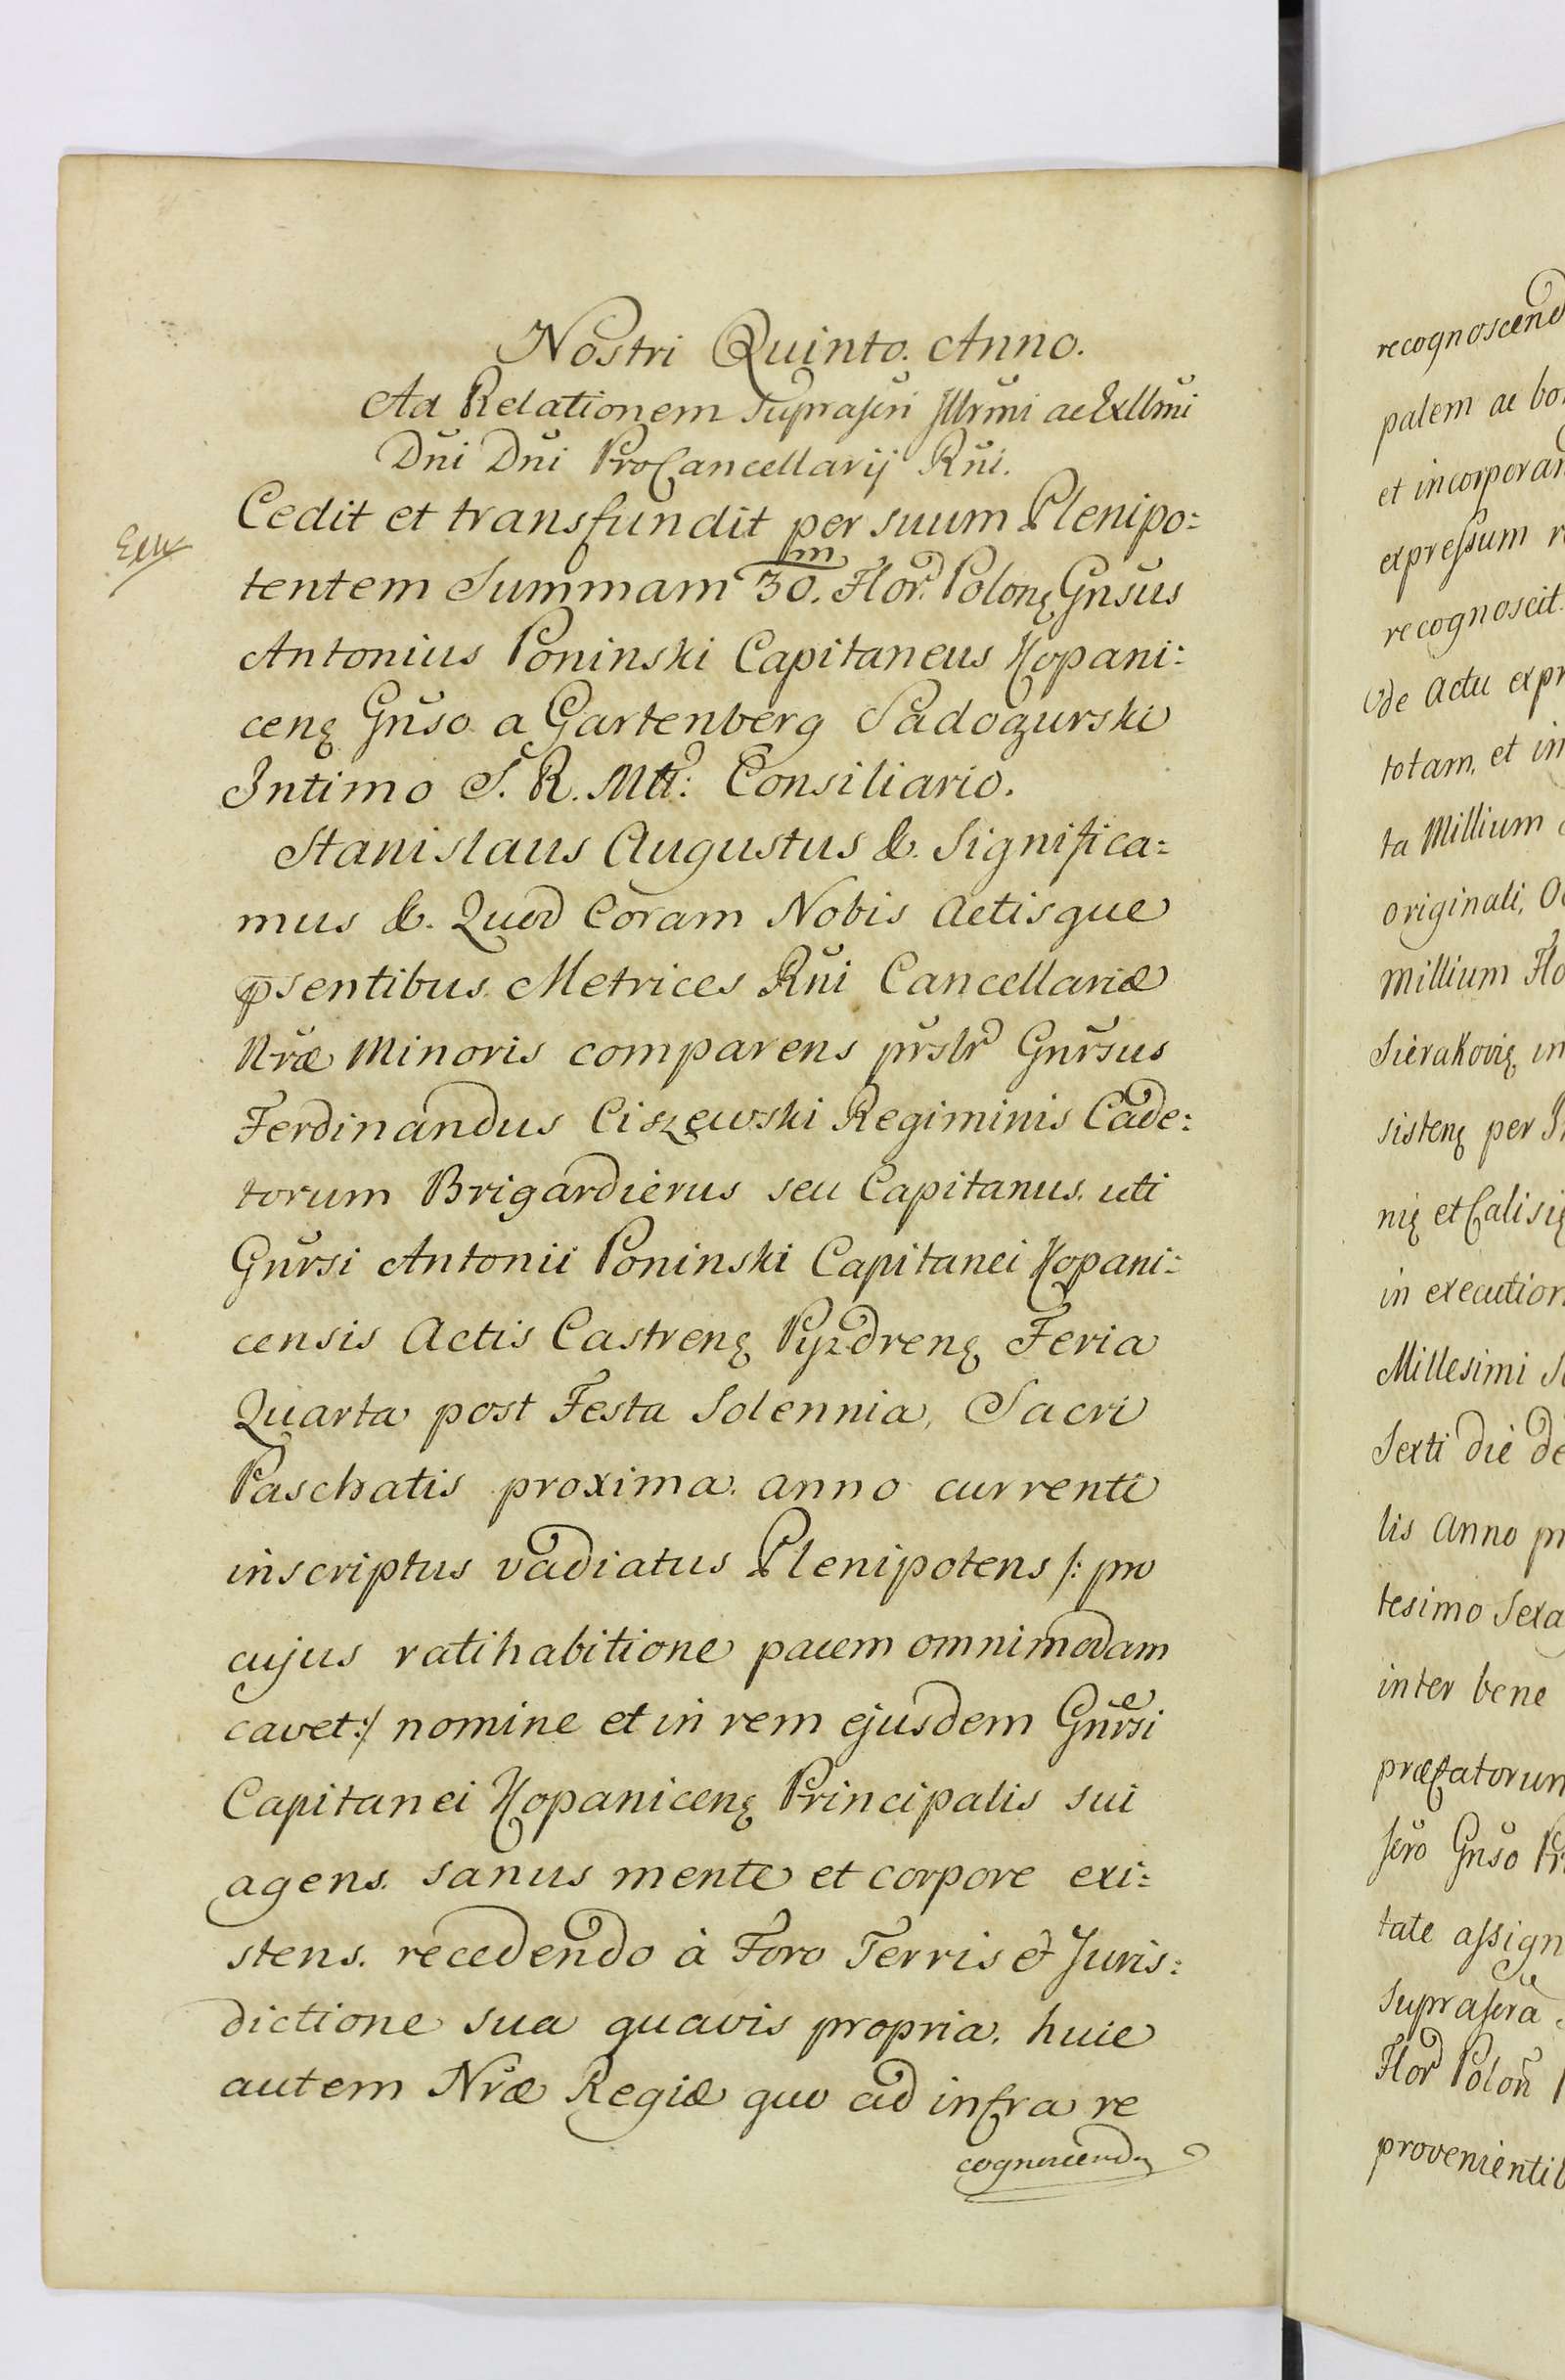 Nostri Quinto. Anno.
Ad Relationem Supraſcri Jllrmi ac Exllmi
Dni Dni ProCancellarij Rni.
Cedit et transfundit per suum Plenipo:
tentem Summam 30.m Flor. Polonę Gnsus
Antonius Poninski Capitaneus Kopani:
cenę Gnso a Gartenberg Sadogurski
Intimo S. R. Mtt: Consiliario.
Stanislaus Augustus &. Significa:
mus &. Quod Coram Nobis Actisque
psentibus Metrices Rni Cancellariæ
Nræ Minoris comparens prslr Gnrsus
Ferdinandus Ciszewski Regiminis Cade:
torum Brigardierus seu Capitanus. uti
Gnrsi Antonii Poninski Capitanei Kopani:
censis Actis Castrenę Pyzdrenę Feria
Quarta post Festa Solennia, Sacri
Paschatis proxima. anno currenti
inscriptus vadiatus Plenipotens /: pro
cujus ratihabitione pacem omnimodam
cavet :/ nomine et in rem ejusdem Gnrsi
Capitanei Kopanicenę Principalis sui
agens. sanus mente et corpore exi:
stens. recedendo à Foro Terris et Juris:
dictione sua quavis propria. huic
autem Nræ Regiæ quo ad infra re
cognoscend
recognoscend
palem ac bo
et incorporan
expreſsum r
recognoscit.
de Actu expr
totam, et in
ta Millium
originali, O
millium Flo
Sierakovię in
sistenę per
nię et Calisię
in execution
Millesimi S
Sexti die de
lis Anno pr
tesimo Sexa
inter bene
præfatorum
ſcro Gnso Pr
tate aſsign
Supraſcra
Flor Polon
provenientib